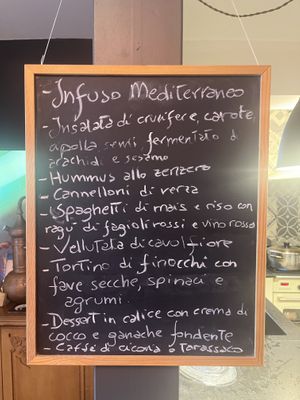 - Infuso Mediterraneo
- Insalata di crucifere, carote,
cipolla, semi, fermentato di
arachidi e sesamo
- Hummus allo zenzero
- Cannelloni di verza
- Spaghetti di mais e riso con
ragù di fagioli rossi e vino rosso
- Vellutata di cavolfiore
- Tortino di finocchi con
fave secche, spinaci e
agrumi.
- Dessert in calice con crema di
cocco e ganache fondente
- Caffè di cicoria o Tarassaco